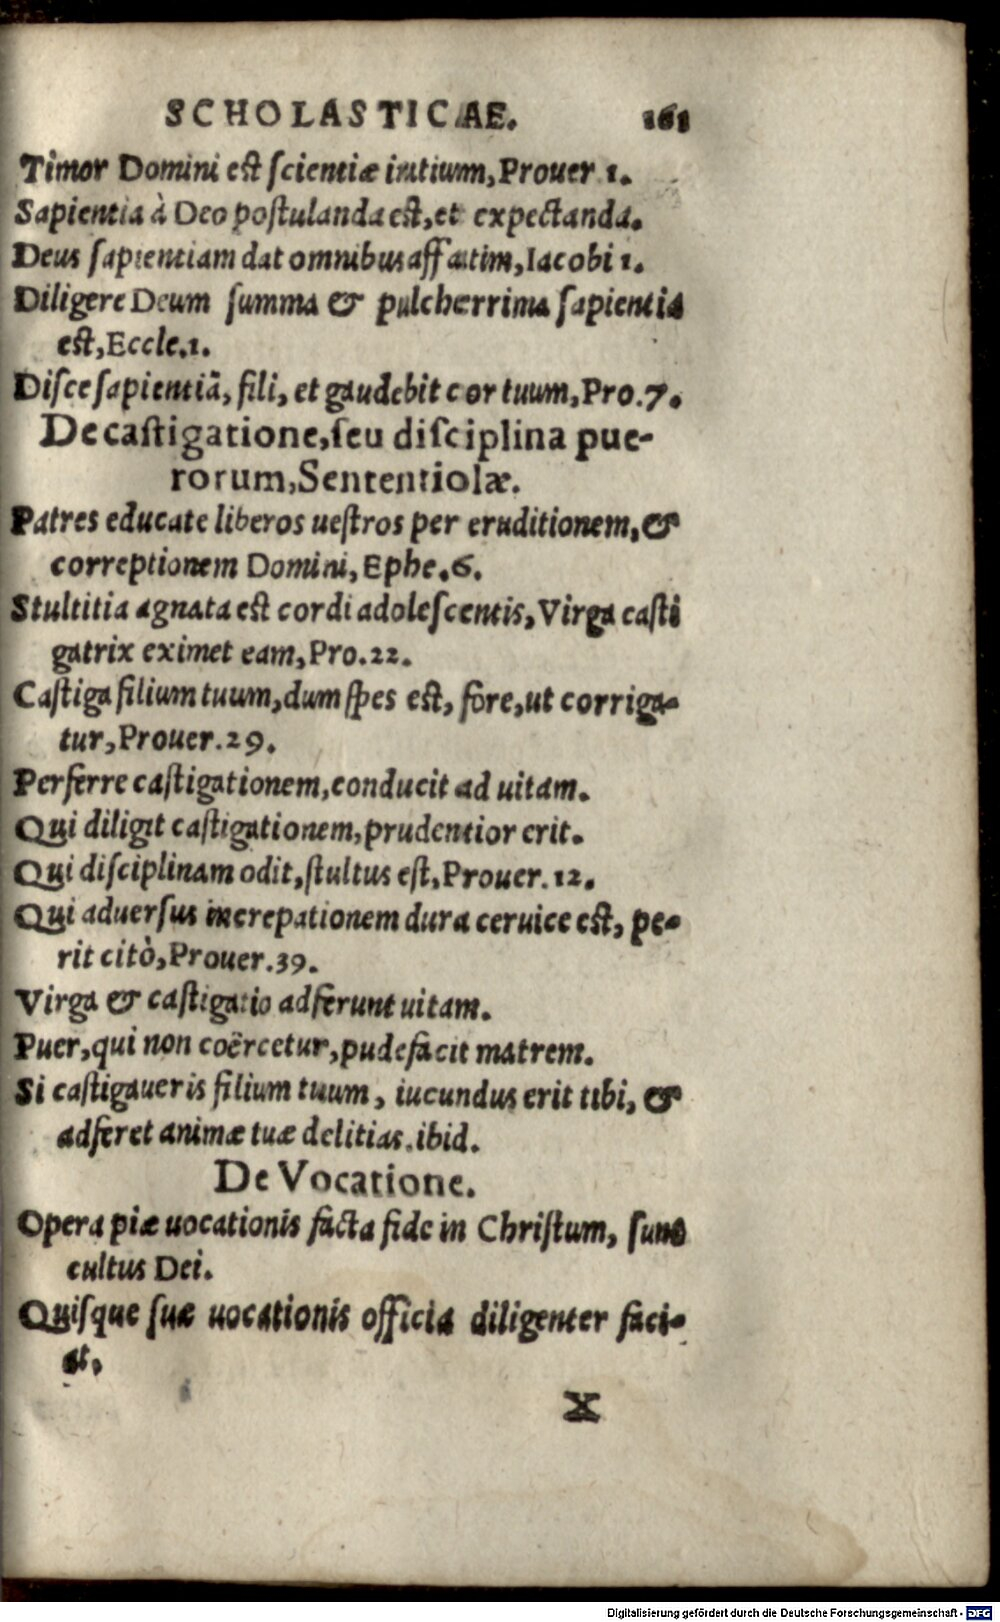 SCHOLASTICAE. 161
Timor Domini est scientiæ initium, Prouer 1.
Sapientia à Deo postulanda est, et expectanda.
Deus sapientiam dat omnibus affatim, Iacobi 1.
Diligere Deum summa & pulcherrima sapientia
est, Eccle. 1.
Disce sapientiã, fili, et gaudebit cor tuum, Pro. 7.
De castigatione, seu disciplina pue-
rorum, Sententiolæ.
Patres educate liberos uestros per eruditionem, &
correptionem Domini, Ephe. 6.
Stultitia agnata est cordi adolescentis, Virga casti
gatrix eximet eam, Pro. 22.
Castiga filium tuum, dum spes est, fore, ut corriga-
tur, Prouer. 29.
Perferre castigationem, conducit ad uitam.
Qui diligit castigationem, prudentior erit.
Qui disciplinam odit, stultus est, Prouer. 12.
Qui aduersus increpationem dura ceruice est, pe-
rit citò, Prouer. 39.
Virga & castigatio adferunt uitam.
Puer, qui non coërcetur, pudefacit matrem.
Si castigaueris filium tuum, iucundus erit tibi, &
adferet animæ tuæ delitias. ibid.
De Vocatione.
Opera piæ uocationis facta fide in Christum, sunt
cultus Dei.
Quisque suæ uocationis officia diligenter faci-
at.
X
Digitalisierung gefördert durch die Deutsche Forschungsgemeinschaft - DFG